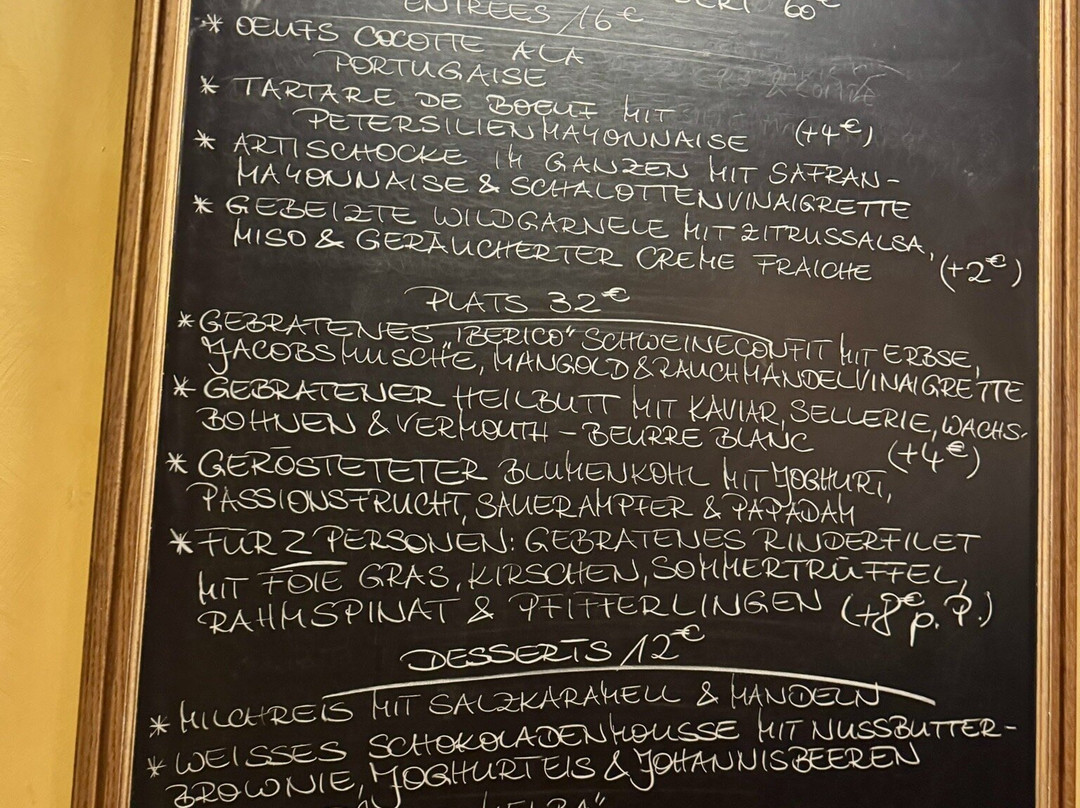 60€
ENTRÉES 16€
* OEUFS COCOTTE A LA
PORTUGAISE
* TARTARE DE BOEUF MIT
PETERSILIENMAYONNAISE (+4€)
* ARTISCHOCKE IM GANZEN MIT SAFRAN-
MAYONNAISE & SCHALOTTENVINAIGRETTE
* GEBEIZTE WILDGARNELE MIT ZITRUSSALSA,
MISO & GERÄUCHERTER CREME FRAICHE (+2€)
PLATS 32€
* GEBRATENES „IBERICO“ SCHWEINECONFIT MIT ERBSE,
JACOBSMUSCHE, MANGOLD & RAUCHMANDELVINAIGRETTE
* GEBRATENER HEILBUTT MIT KAVIAR, SELLERIE, WACHS-
BOHNEN & VERMOUTH - BEURRE BLANC (+4€)
* GERÖSTETETER BLUMENKOHL MIT JOGHURT,
PASSIONSFRUCHT, SAUERAMPFER & PAPADAM
* FÜR 2 PERSONEN: GEBRATENES RINDERFILET
MIT FOIE GRAS, KIRSCHEN, SOMMERTRÜFFEL,
RAHMSPINAT & PFIFFERLINGEN (+8€ p. P.)
DESSERTS 12€
* MILCHREIS MIT SALZKARAMELL & MANDELN
* WEISSES SCHOKOLADENMOUSSE MIT NUSSBUTTER-
BROWNIE, JOGHURTEIS & JOHANNISBEEREN